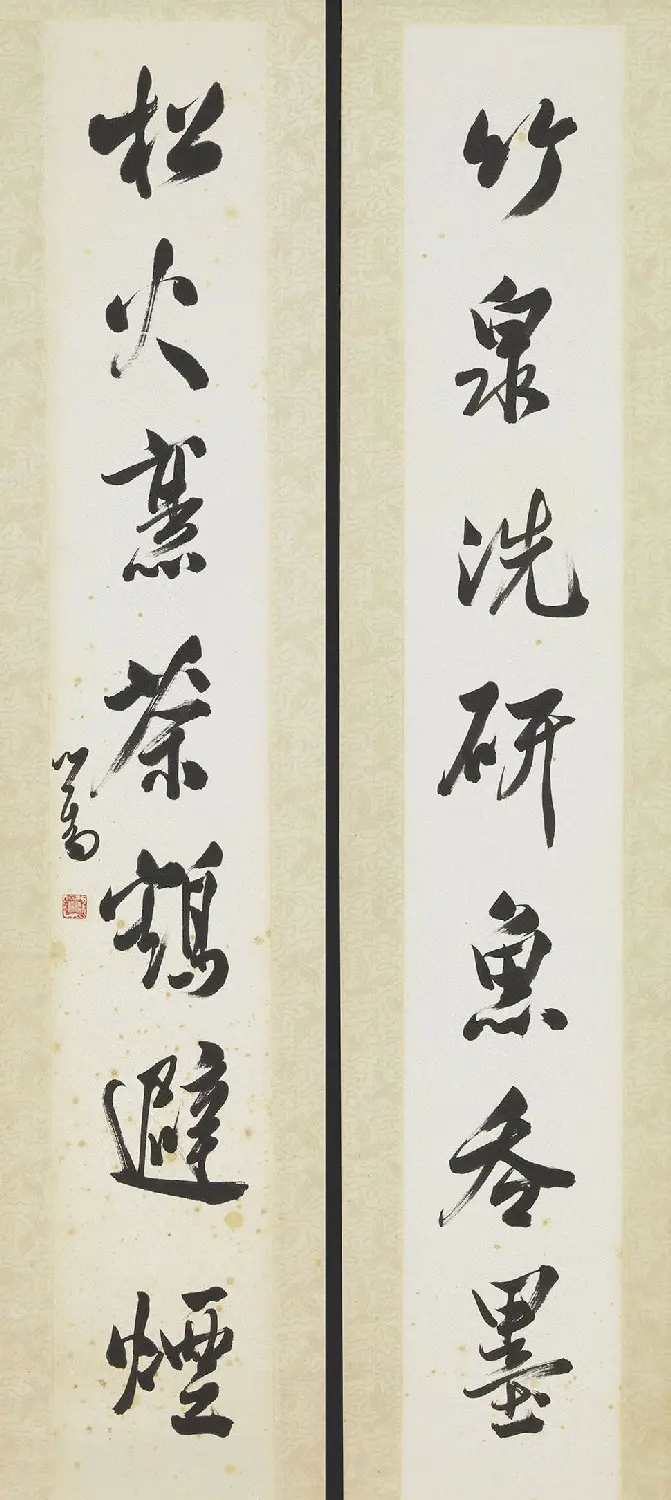 竹泉洗研魚吞墨
松火烹茶鶴避煙